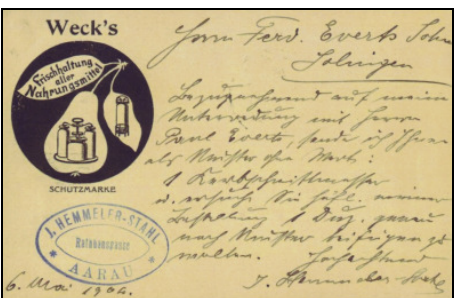 Weck's
Frischhaltung
aller
Nahrungsmittel
SCHUTZMARKE
J. HEMMELER-STAHL
Rathausgasse
AARAU
6. Mai 1904.
Herrn Ferd. Everts Sohn
Solingen
Bezugnehmend auf meine
Unterredung mit Herrn
Paul Everts, sende ich Ihnen
als Muster ohne Wert:
1 Kerbschnittmesser
u. ersuche Sie höfl. meiner
Bestellung 1 Duz. genau
nach Muster beifügen zu
wollen. Hochachtend
J. Hemmeler-Stahl